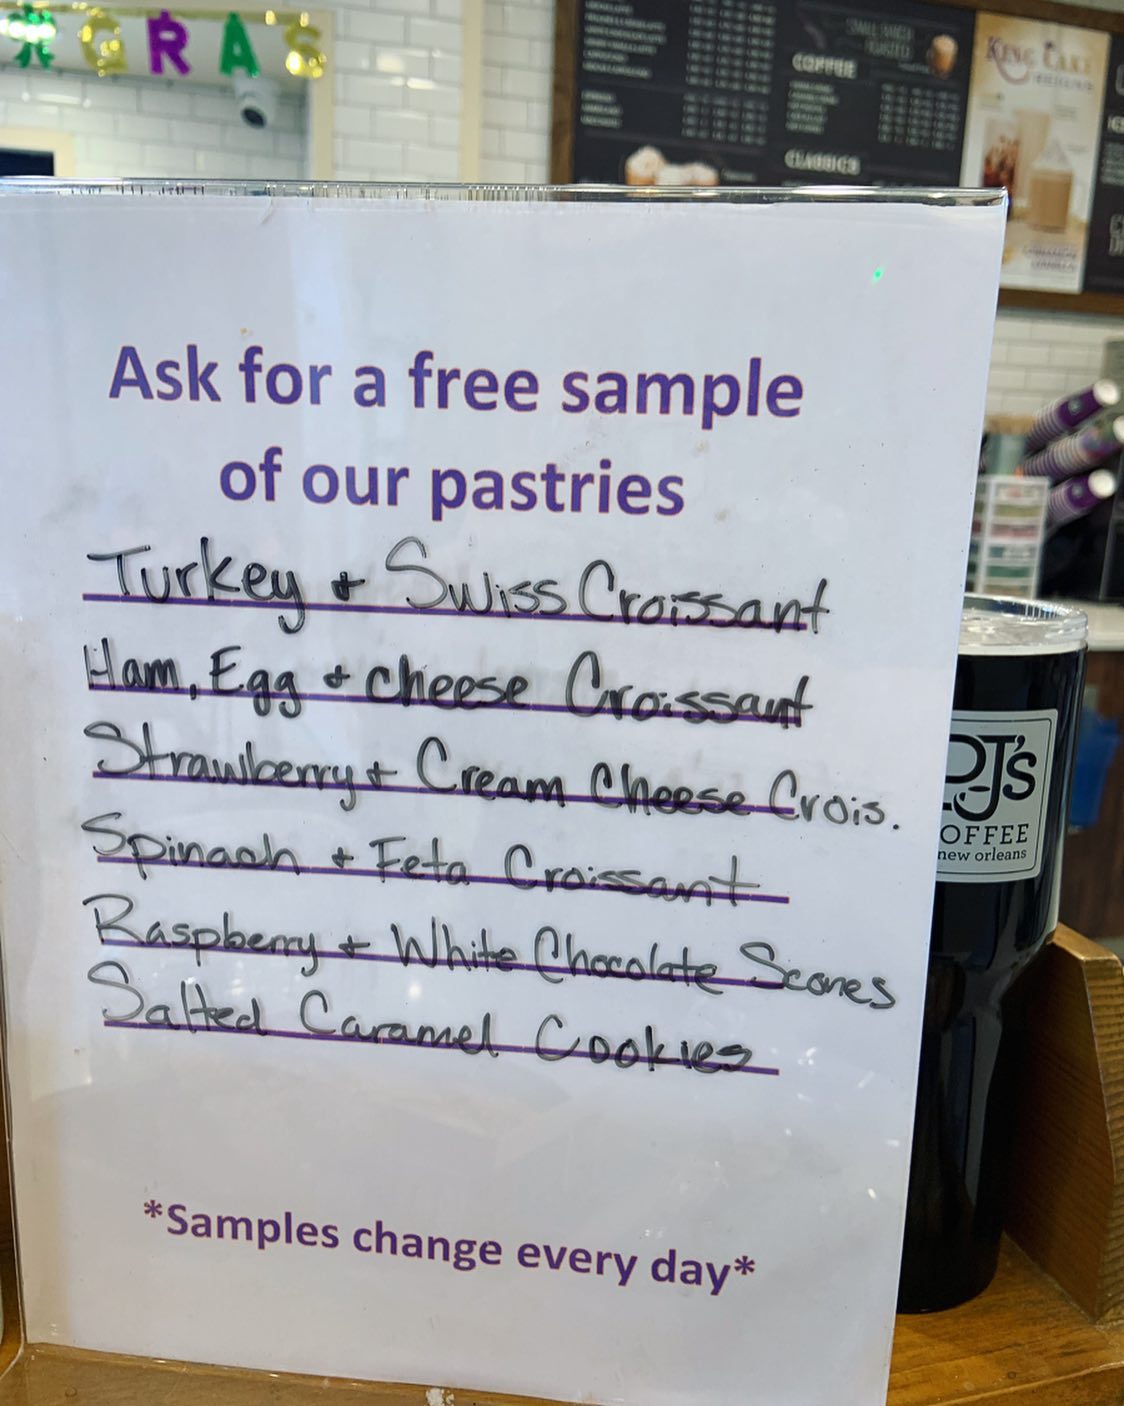 GRAS
COFFEE
CLASSICS
KING CAKE
Ask for a free sample
of our pastries
Turkey + Swiss Croissant
Ham, Egg + cheese Croissant
Strawberry + Cream Cheese Crois.
Spinach + Feta Croissant
Raspberry + White Chocolate Scones
Salted Caramel Cookies
*Samples change every day*
PJ's
OFFEE
new orleans